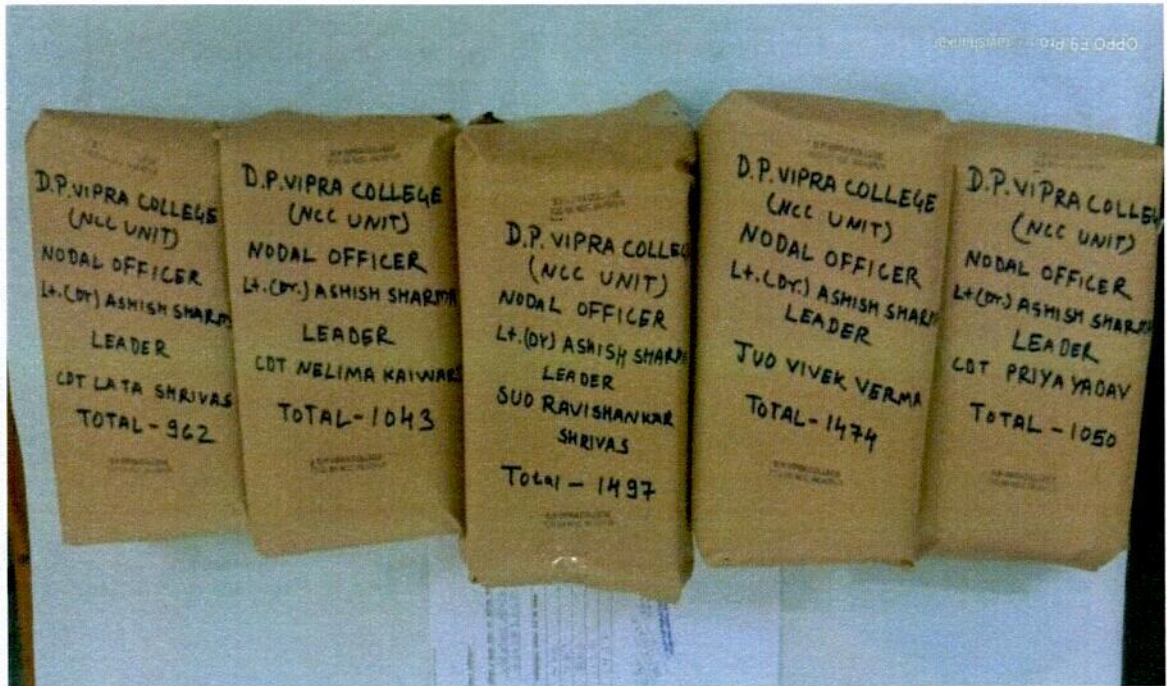 D.P. VIPRA COLLEGE
(NCC UNIT)
NODAL OFFICER
Lt.(Dr) ASHISH SHARMA
LEADER
CDT LATA SHRIVAS
TOTAL - 962
D.P. VIPRA COLLEGE
(NCC UNIT)
NODAL OFFICER
Lt.(Dr.) ASHISH SHARMA
LEADER
CDT NELIMA KAIWAR
TOTAL - 1043
D.P. VIPRA COLLEGE
(NCC UNIT)
NODAL OFFICER
Lt.(Dr) ASHISH SHARMA
LEADER
SUO RAVISHANKAR
SHRIVAS
Total - 1497
D.P. VIPRA COLLEGE
(NCC UNIT)
NODAL OFFICER
Lt.(Dr.) ASHISH SHARMA
LEADER
JUO VIVEK VERMA
TOTAL - 1474
D.P. VIPRA COLLEG
(NCC UNIT)
NODAL OFFICER
Lt.(Dr) ASHISH SHARMA
LEADER
CDT PRIYA YADAV
TOTAL - 1050
OPPO F9 Pro